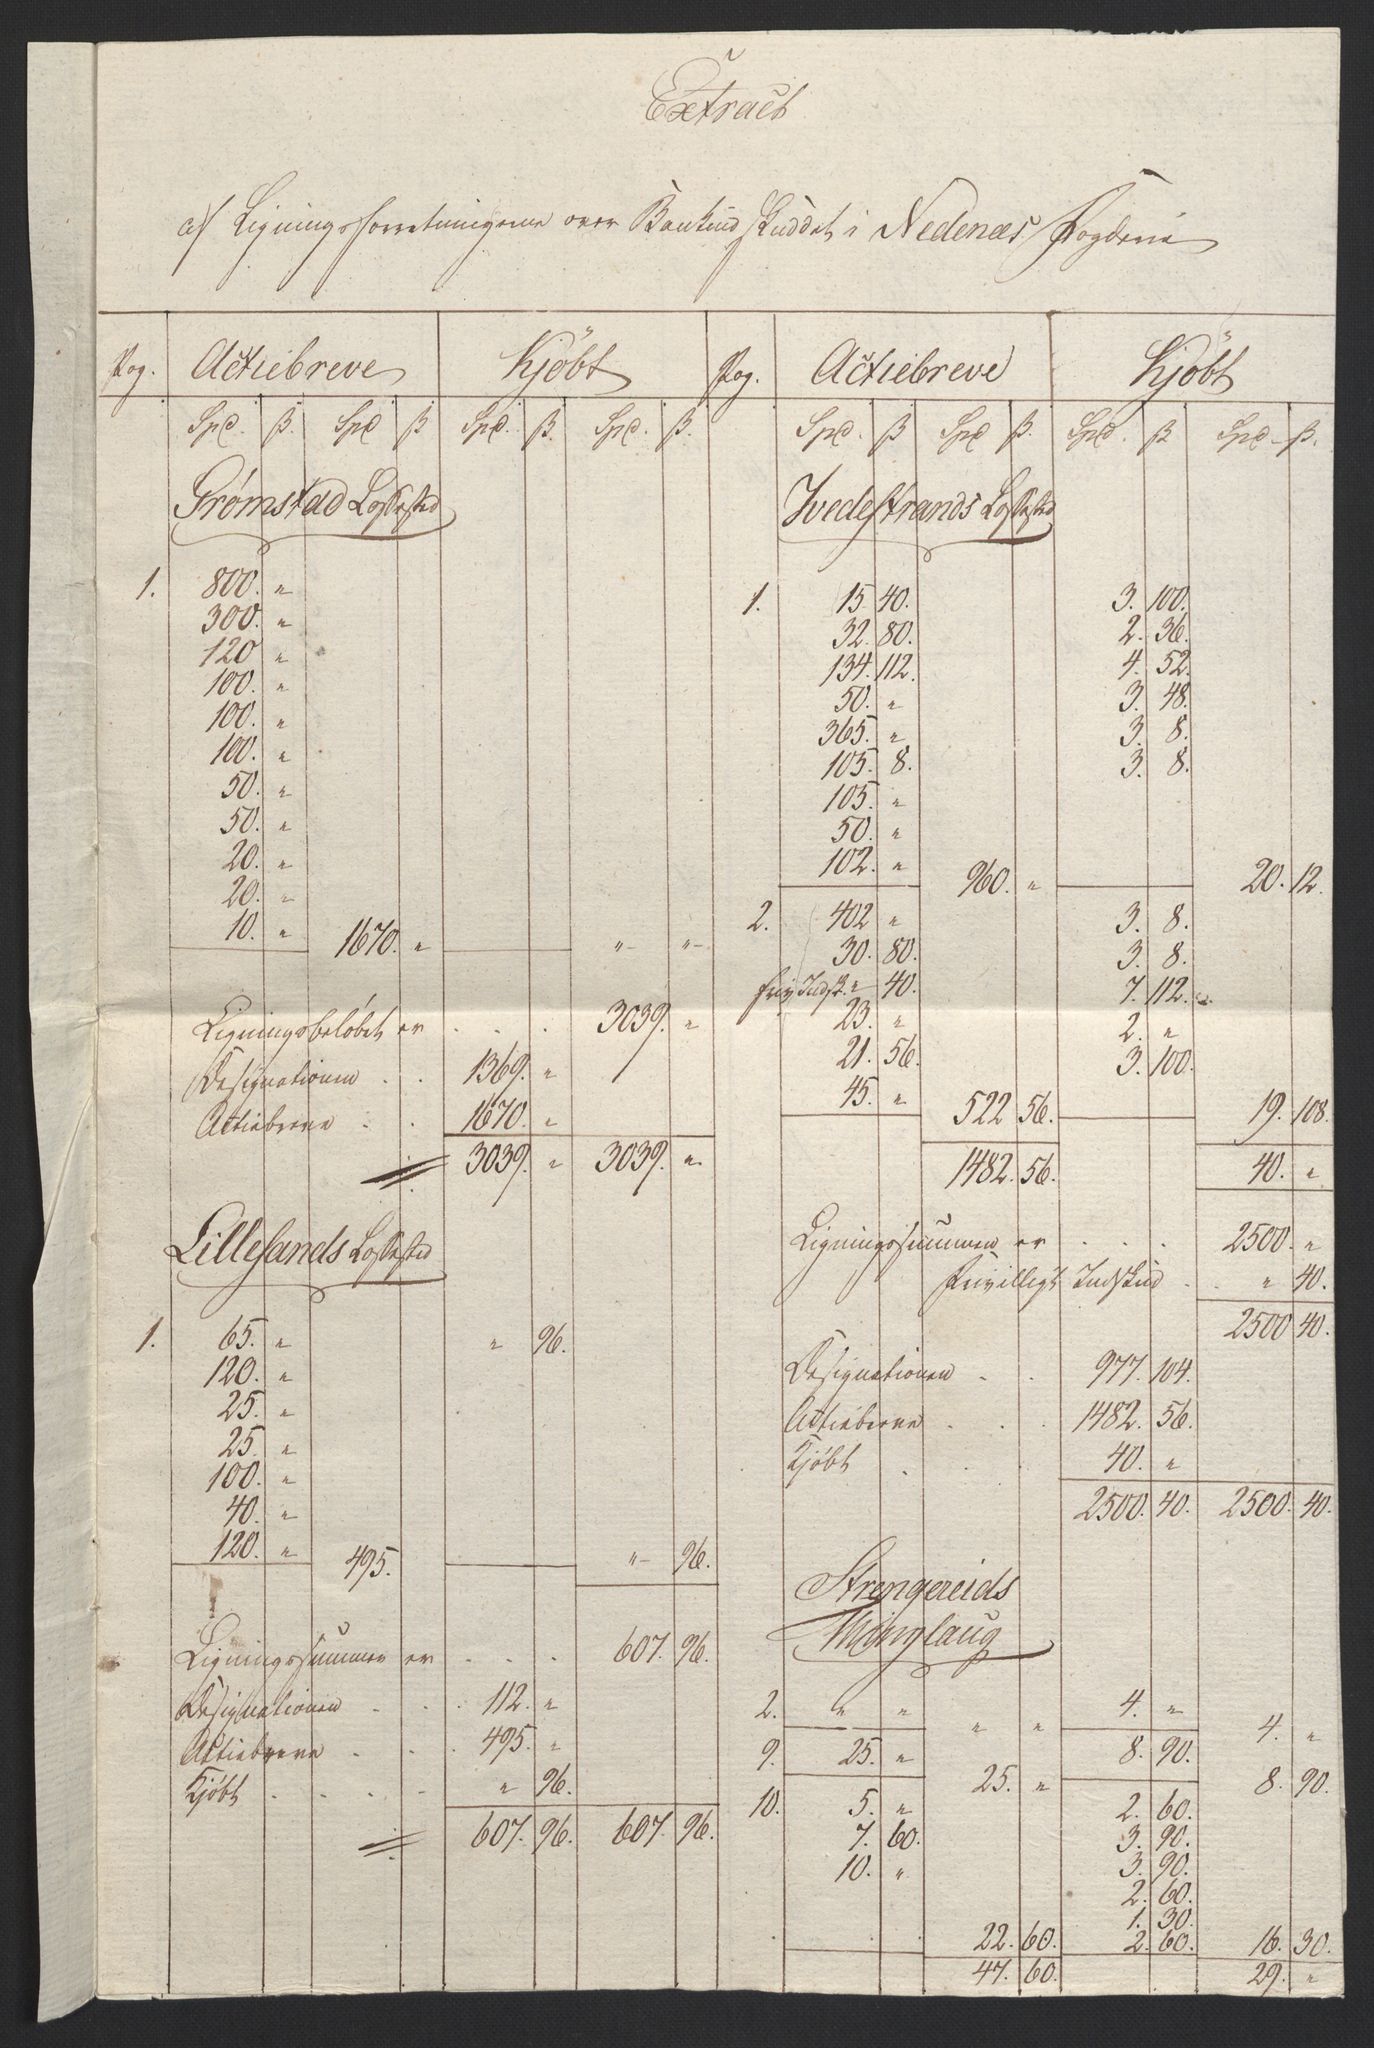 Extract
af Ligningsforretningerne over Bankindskuddet i Nedenæs Fogderie
Pag. Actiebreve Kjöbt
Spd. ß. Spd ß Spd. ß. Spd. ß.
Grømstad Ladested
1. 800. "
300. "
120 "
100. "
100. "
100. "
50. "
50. "
20. "
20. "
10. " 1670. " "- "-
Ligningsbeløbet er . . . 3039. "
Designationen . . 1369. "
Actiebreve . . 1670. "
3039. " 3039. "
Lillesands Ladested
1. 65. " " 96.
120. "
25. "
25. "
100. "
40. "
120. " 495. "- 96.
Ligningssummen er . . . 607. 96.
Designationen . . . 112. "
Actiebreve . . . 495. "
Kjöbt . . . . " 96.
607. 96. 607. 96.
Pag. Actiebreve Kjöbt
Spd. ß Spd ß. Spd. ß Spd - ß.
Tvedestrands Ladested
1. 15 40. 3. 100.
32. 80. 2. 36.
134. 112. 4. 52.
50. " 3. 48.
365. " 3. 8.
105. 8. 3. 8.
105. "
50. "
102. " 960. " 20. 12.
2. 402 " 3. 8.
30. 80. 3. 8.
friv. Indsk. " 40. 7. 112.
23. " 2. "
21. 56. 3. 100.
45. " 522 56. 19. 108.
1482. 56. 40. "
Ligningssummen er . . . 2500. "
Frivilligt Indskud . . " 40.
2500 40.
Designationen . . 977. 104.
Actiebreve . . . 1482. 56.
Kjöbt . . . 40. "
2500. 40. 2500. 40.
Strengereids
Thinglaug
2. " " " " 4. " 4. "
9. 25. " 25. " 8. 90. 8. 90.
10. 5. " 2. 60.
7. 60. 3. 90.
10. " 3. 90.
2. 60.
1. 30.
22. 60. 2. 60. 16. 30.
47. 60. 29. "